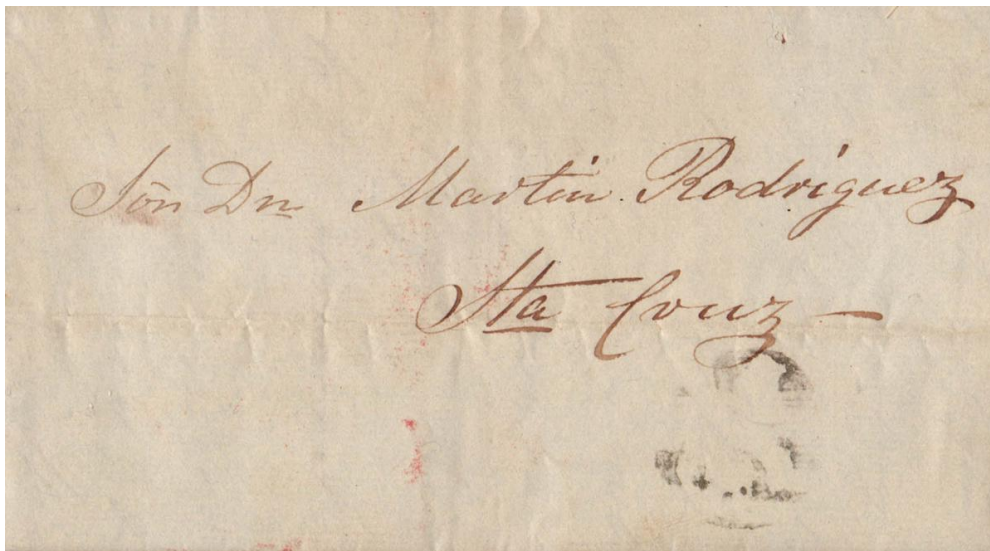 Sōn Dn Martin Rodriguez
Sta Cruz —